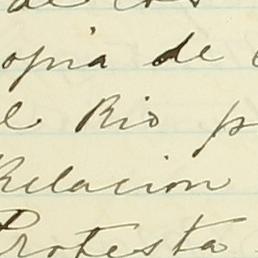 de los
opia de
el Rio p
Relacion
Protesta